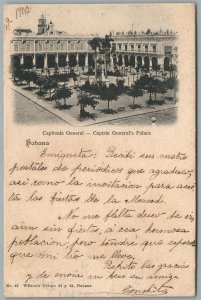 Capitania General - Captain General's Palace
Habana
Emigurita: Recibí sus cuatro
postales de periodicos que agradezco,
así como la invitación para asis
tir las fiestas de la Merced.
No me falta deseo de ir,
aun sin fiestas, á esa hermosa
poblacion, pero tendré que esperar
que mi tio me lleve.
Repito las gracias
y de nuevo me su amiga
Conchita
No. 18 Wilson's Obispo 41 y 43, Habana